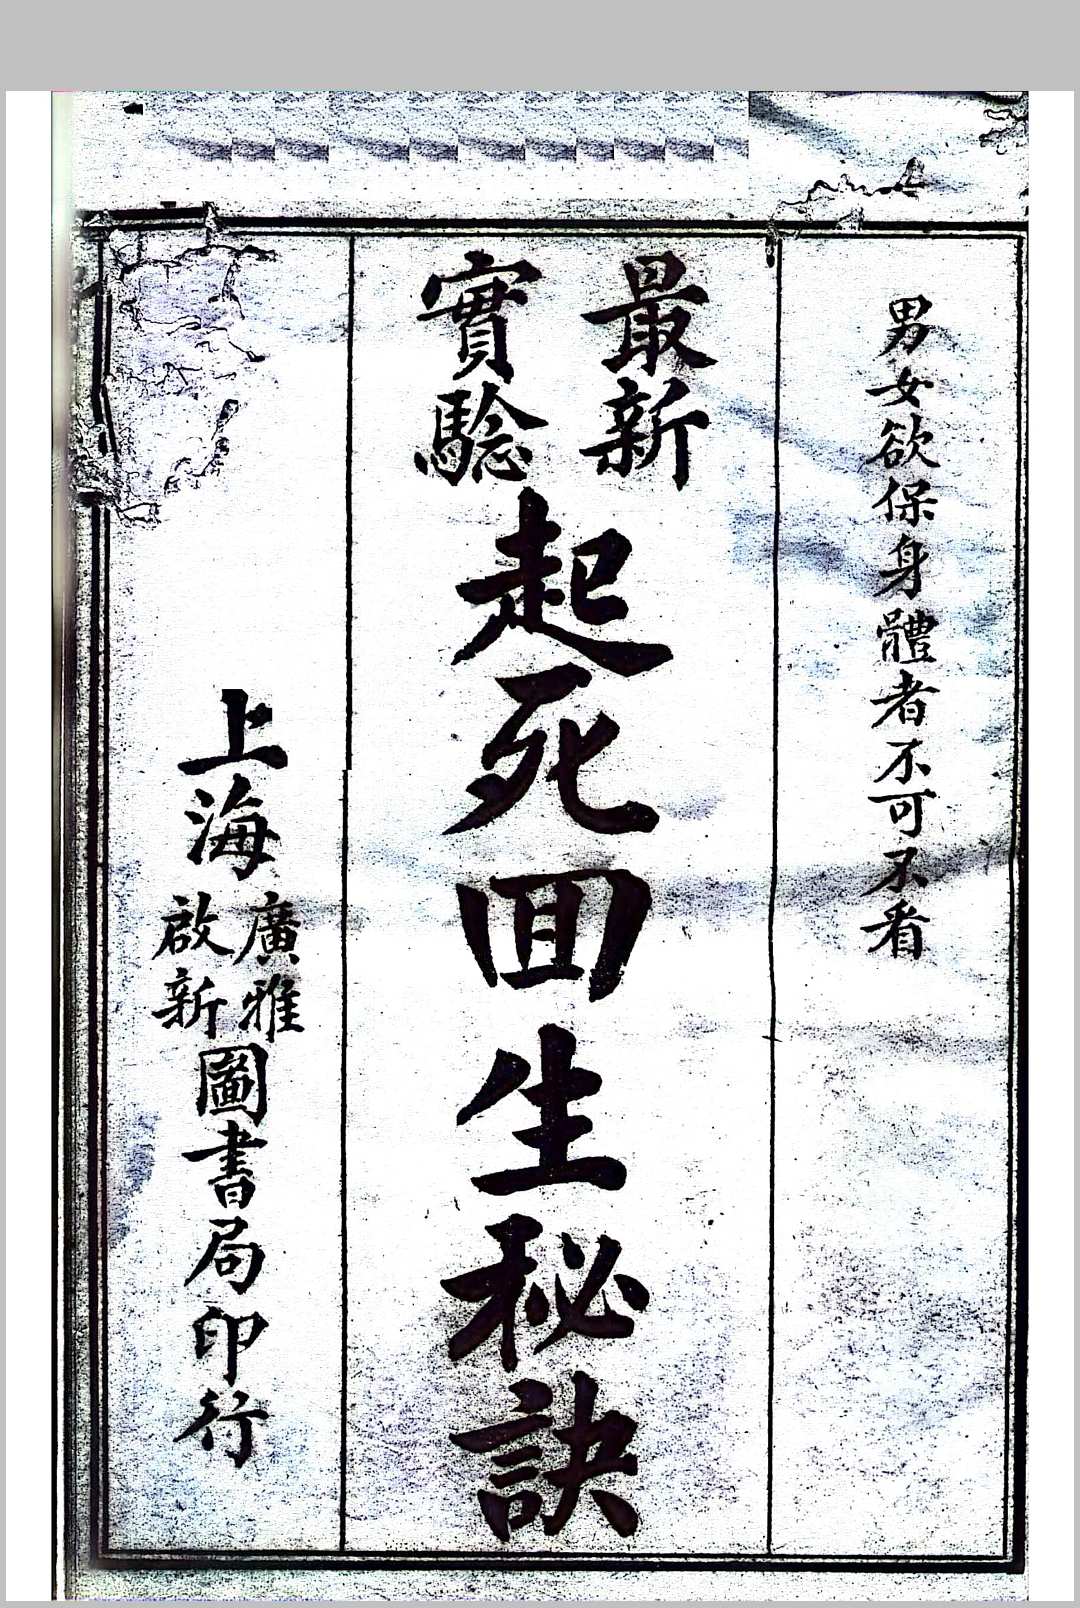 男女欲保身體者不可不看
最新
實騐
起死囬生秘訣
上海
廣雅
啟新
圖書局印行